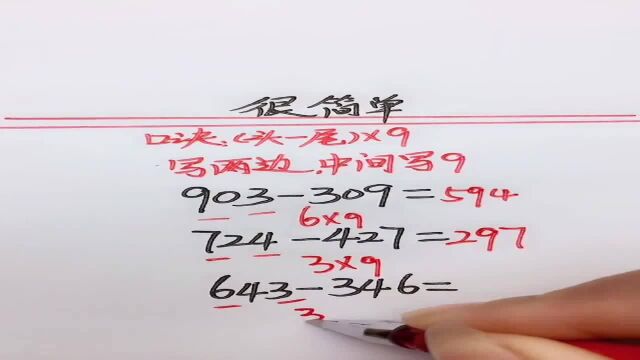 很简单
口决:(头一尾)×9
写两边,中间写9
903-309=594
6×9
724-427=297
3×9
643-346=
3